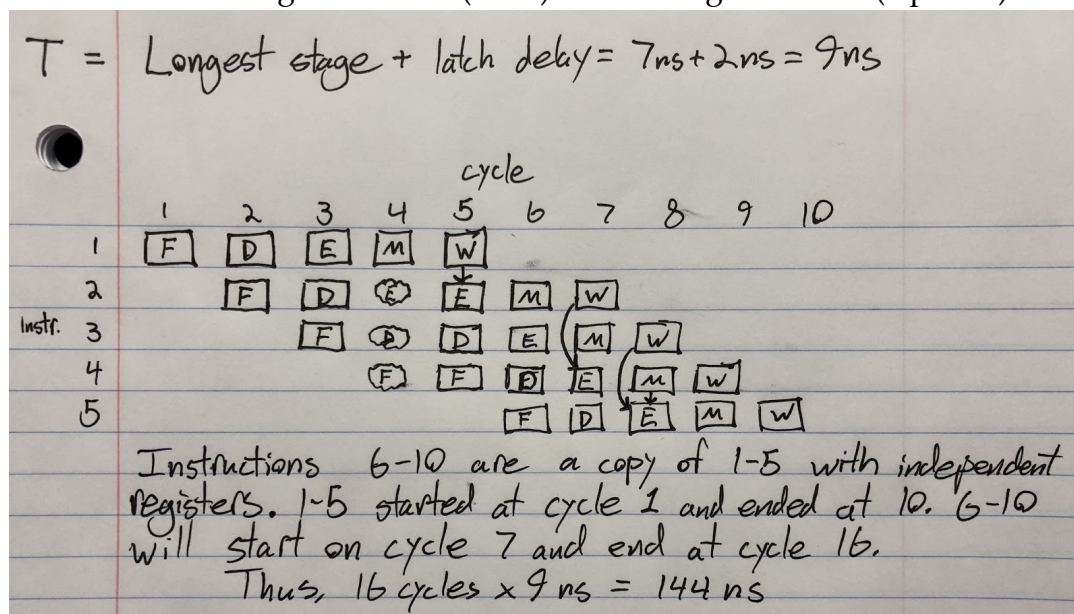 T = Longest stage + latch delay = 7ns + 2ns = 9ns
cycle
1 2 3 4 5 6 7 8 9 10
1 F D E M W
2 F D E E M W
Instr. 3 F D D E M W
4 F F D E M W
5 F D E M W
Instructions 6-10 are a copy of 1-5 with independent
registers. 1-5 started at cycle 1 and ended at 10. 6-10
will start on cycle 7 and end at cycle 16.
Thus, 16 cycles x 9 ns = 144 ns